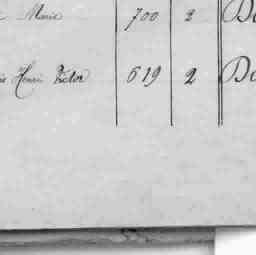 Marie 700 2
Henri Victor 619 2